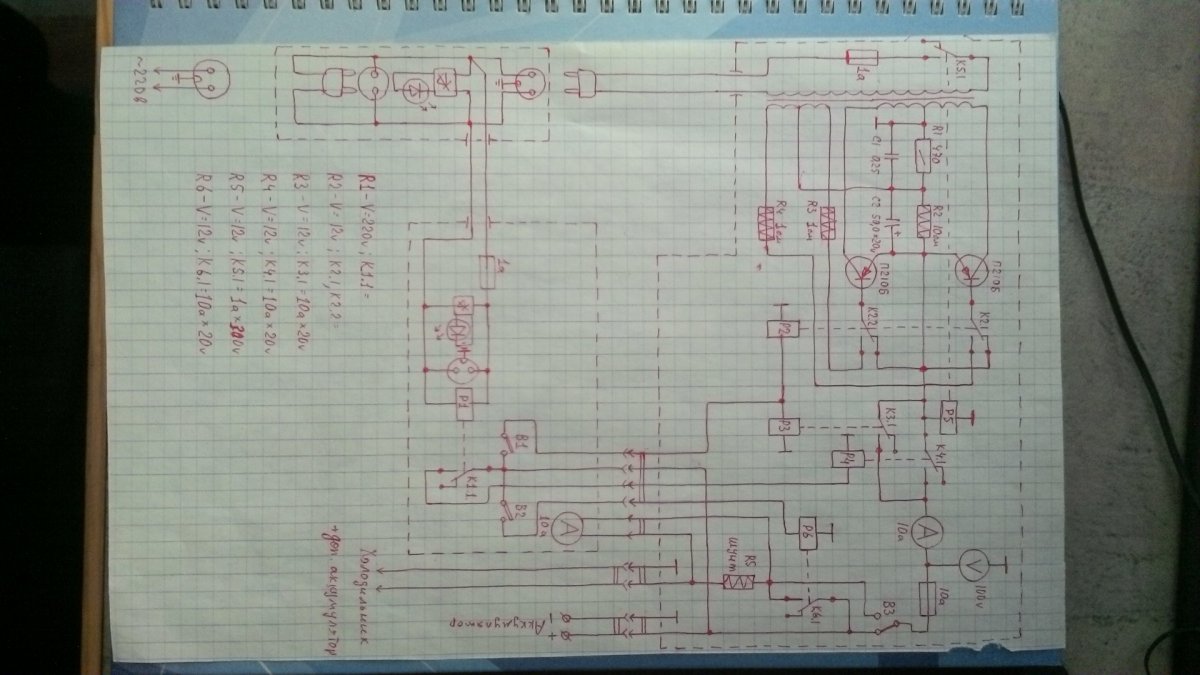 ~220в
R1-V=220v, K1.1=
R2-V=12v; K2.1, K2.2=
R3-V=12v; K3.1=10a×20v
R4-V=12v; K4.1=10a×20v
R5-V=12v; K5.1=1a×300v
R6-V=12v; K6.1=10a×20v
1a
K5.1
R1 470
C1 0,25
R2 10ом
C2 50,0×20v
R3 1ом
R4 1ом
П210б
П210б
K2.2
K2.1
P2
P3
P5
K3.1
P4
K4.1
A
10a
V
100v
10a
B3
P6
K6.1
R5
шунт
1a
P1
B1
K1.1
B2
A
10a
Холодильник
+доп аккумулятор
Аккумулятор
- +